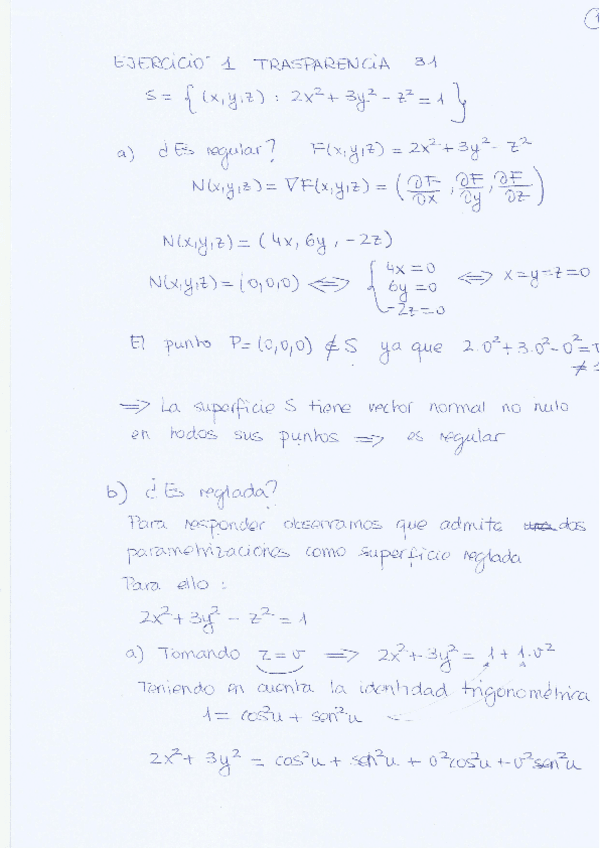 1
EJERCICIO 1 TRASPARENCIA 31
S = { (x,y,z) : 2x² + 3y² - z² = 1 }
a) ¿Es regular? F(x,y,z) = 2x² + 3y² - z²
N(x,y,z) = ∇F(x,y,z) = (∂F/∂x, ∂F/∂y, ∂F/∂z)
N(x,y,z) = (4x, 6y, -2z)
N(x,y,z) = (0,0,0) ⟺ { 4x = 0 ⟺ x=y=z=0
6y = 0
-2z = 0
El punto P = (0,0,0) ∉ S ya que 2·0² + 3·0² - 0² =
≠ 1
⟹ La superficie S tiene vector normal no nulo
en todos sus puntos ⟹ es regular
b) ¿Es reglada?
Para responder observamos que admite dos
parametrizaciones como superficie reglada
Para ello :
2x² + 3y² - z² = 1
a) Tomando z = v ⟹ 2x² + 3y² = 1 + 1·v²
Teniendo en cuenta la identidad trigonométrica
1 = cos²u + sen²u
2x² + 3y² = cos²u + sen²u + v²cos²u + v²sen²u